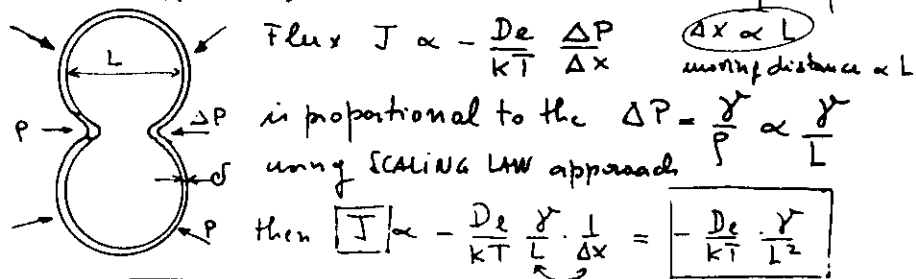 Flux J ∝ - De/kT ΔP/Δx   Δx ∝ L
moving distance ∝ L
L
ρ   ΔP   is proportional to the ΔP = γ/ρ ∝ γ/L
using SCALING LAW approach
δ
ρ   then J ∝ - De/kT γ/L · 1/Δx = - De/kT · γ/L²